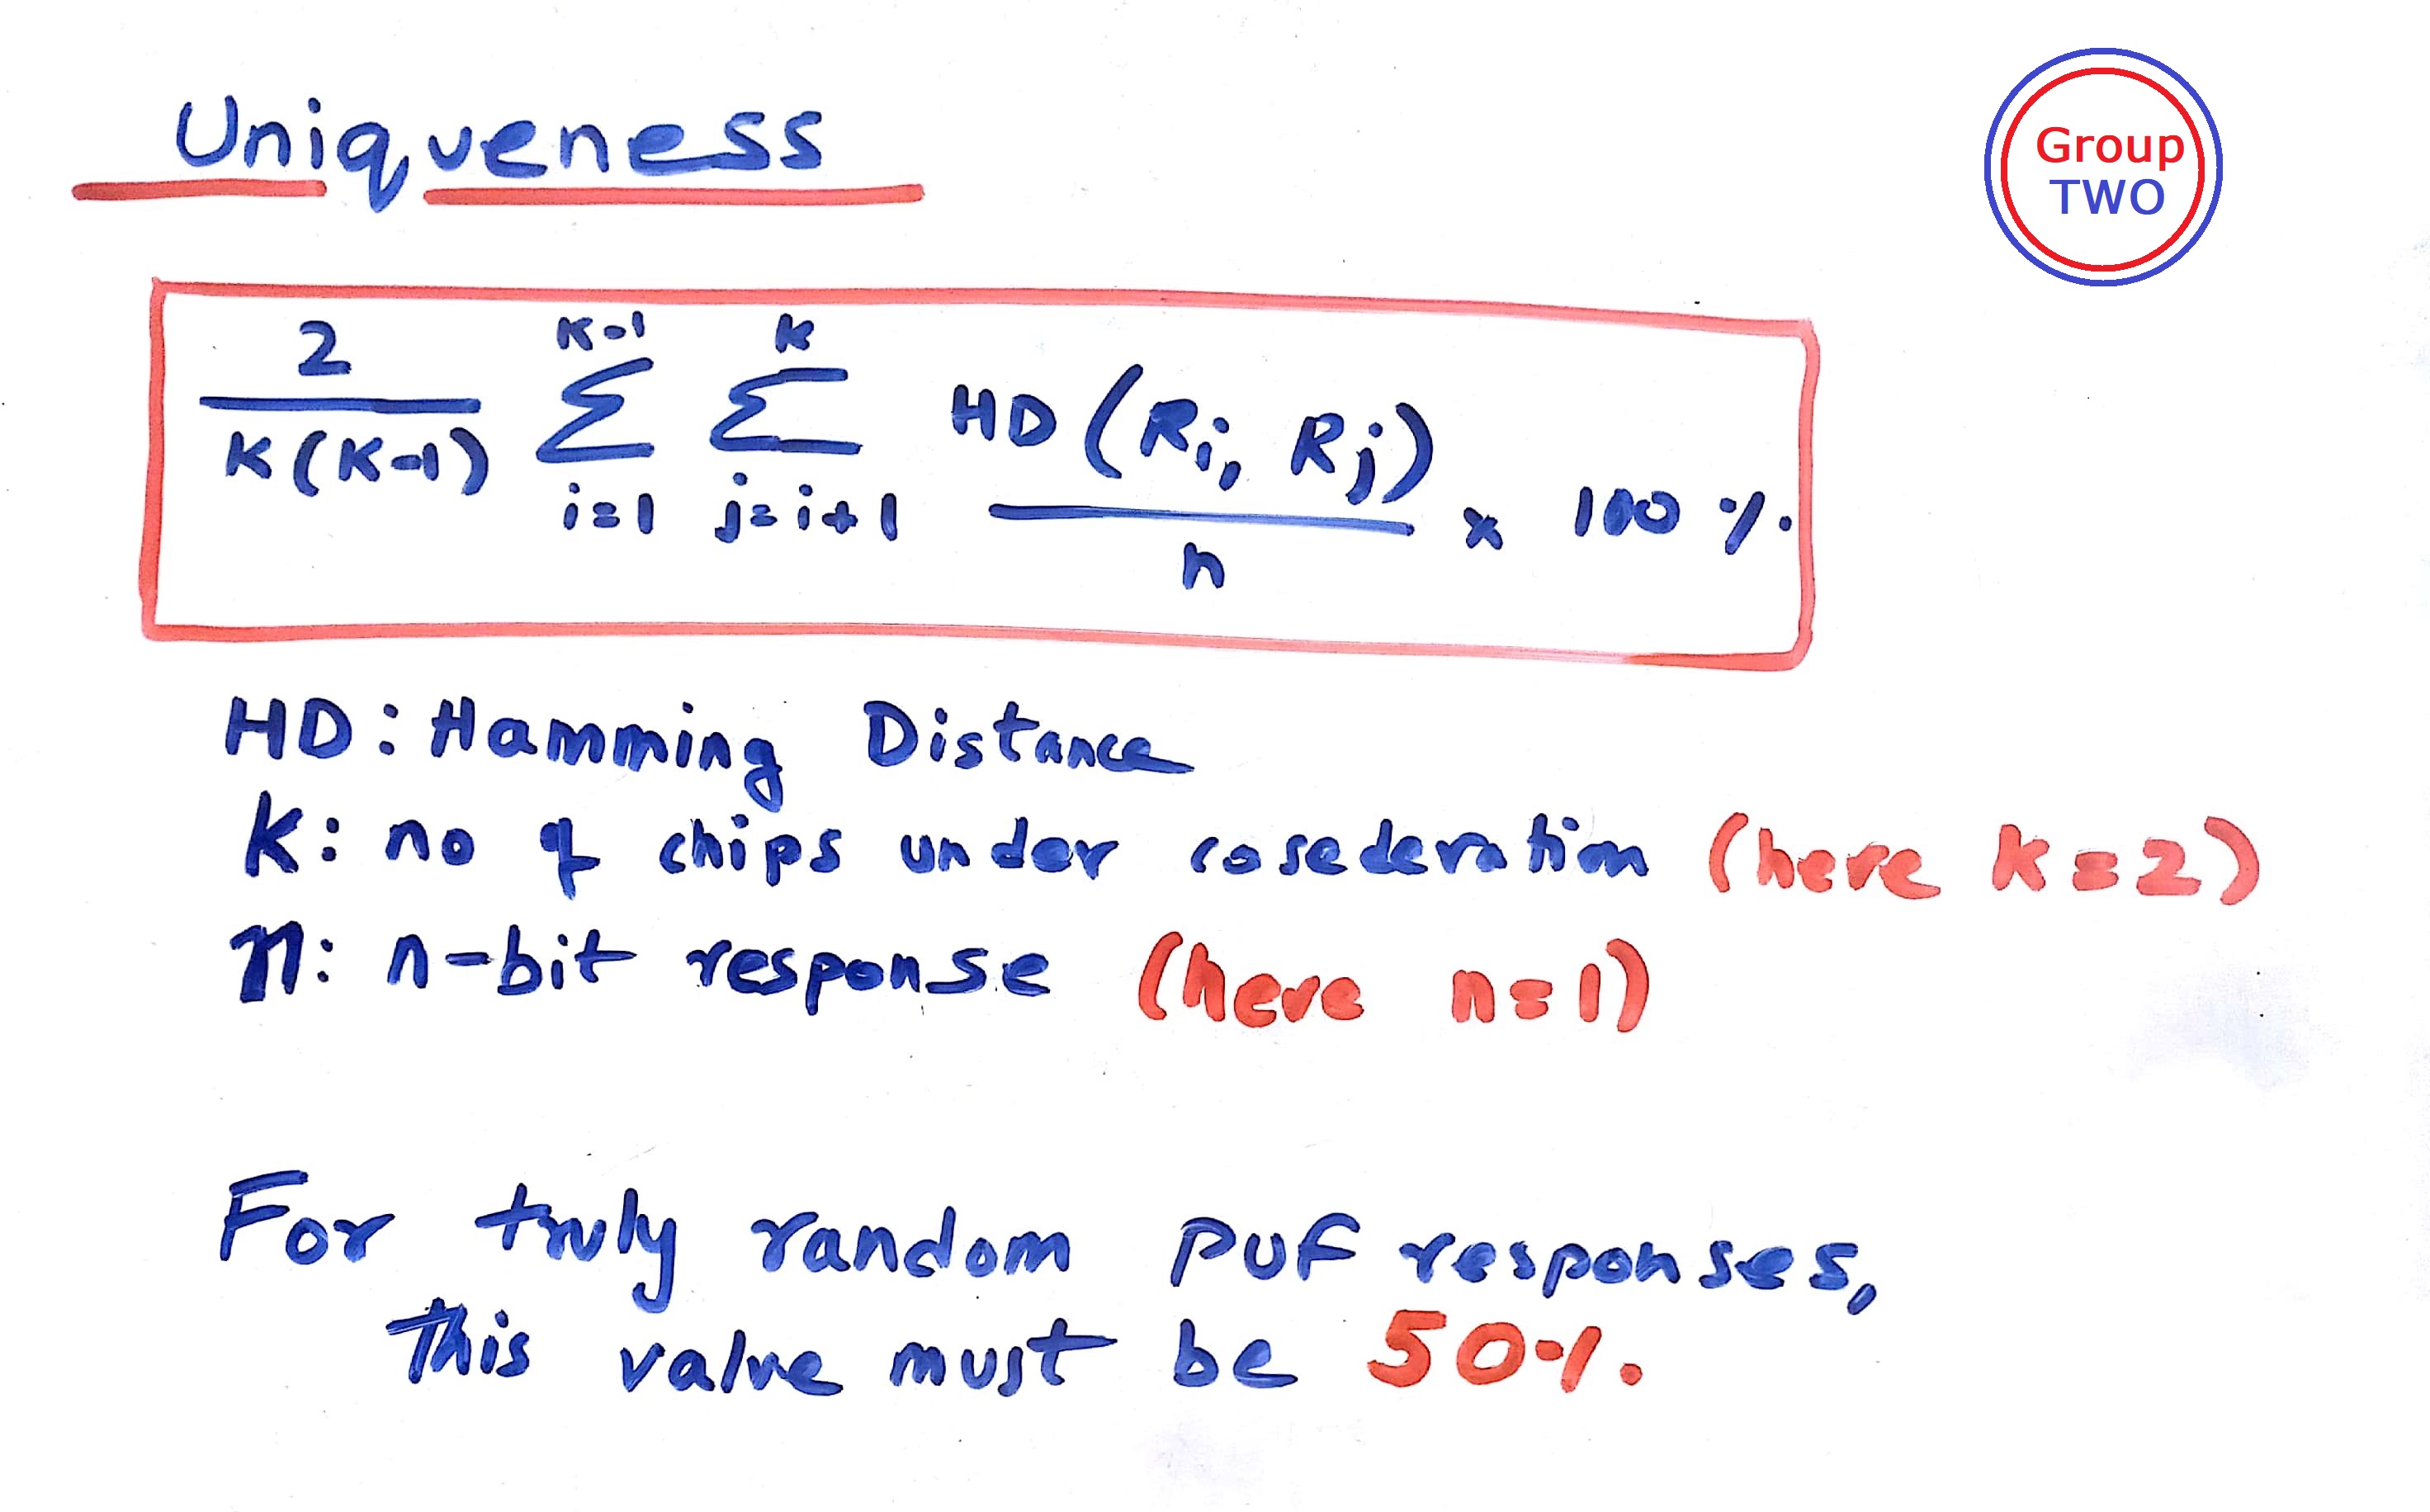 Uniqueness
Group
TWO
2 K-1 k
K(K-1) Σ Σ HD(Ri, Rj)
i=1 j=i+1 n x 100 %
HD: Hamming Distance
K: no of chips under cosederation (here k=2)
n: n-bit response (here n=1)
For truly random PUF responses,
This value must be 50%.